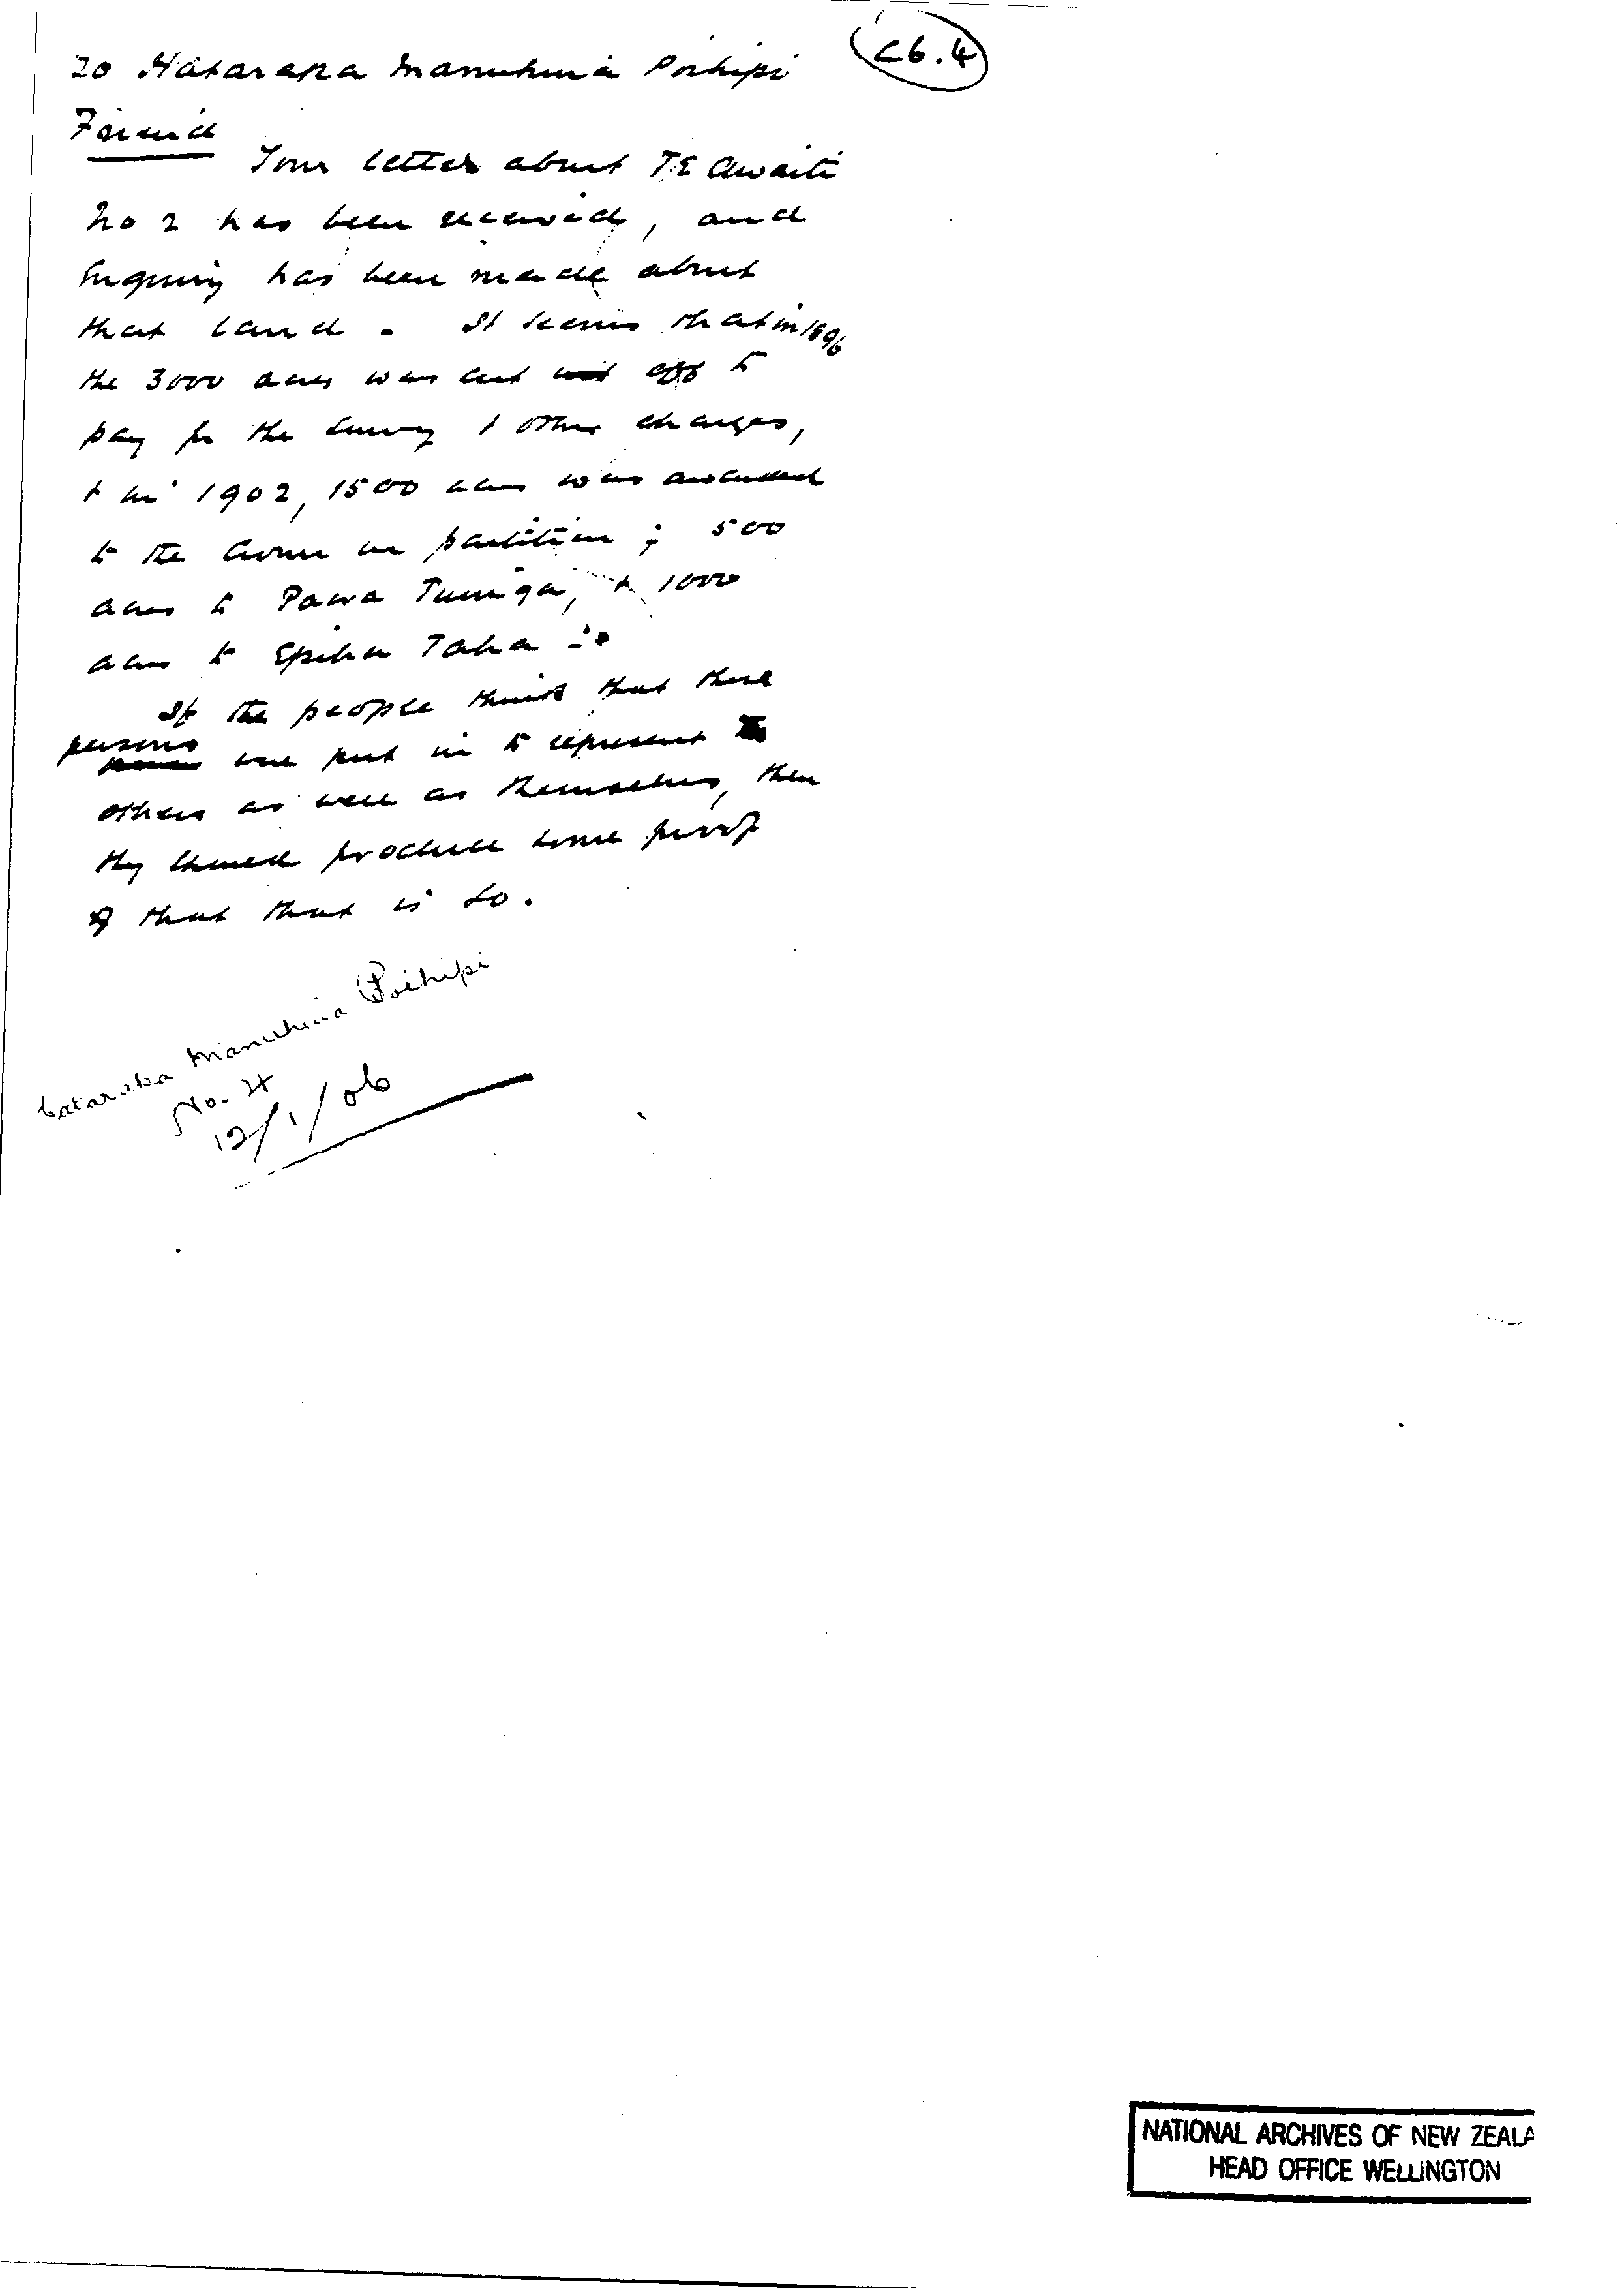 C6.4
To Hataraka Manuhuia Poihipi
Friend
Your letter about TE Awaiti
No 2 has been received, and
Inquiry has been made about
that land - It seems that in 1896
the 3000 acres was cut off to
pay for the survey & other charges,
& in 1902, 1500 acres was awarded
to the Crown on partition; 500
acres to Paora Tuniga, & 1000
acres to Epiha Taha -
If the people think that these
persons were put in to represent
others as well as themselves, then
they should produce some proof
of that that is so.
Hataraka Manuhuia Poihipi
No. 4
12/1/06
NATIONAL ARCHIVES OF NEW ZEALA
HEAD OFFICE WELLINGTON